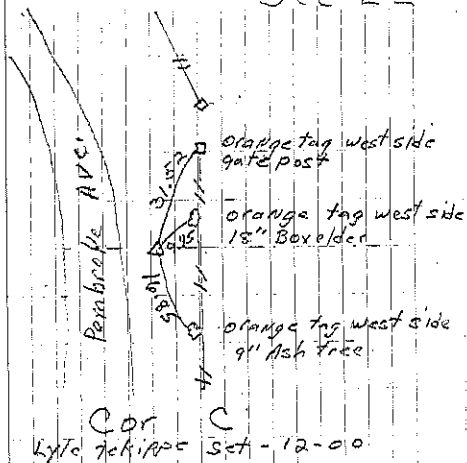 Sec 22
orange tag west side
gate post
31.52
orange tag west side
18" Boxelder
Pembroke Ave.
orange tag west side
9" Ash tree
Cor C
Lyle set - 12-00